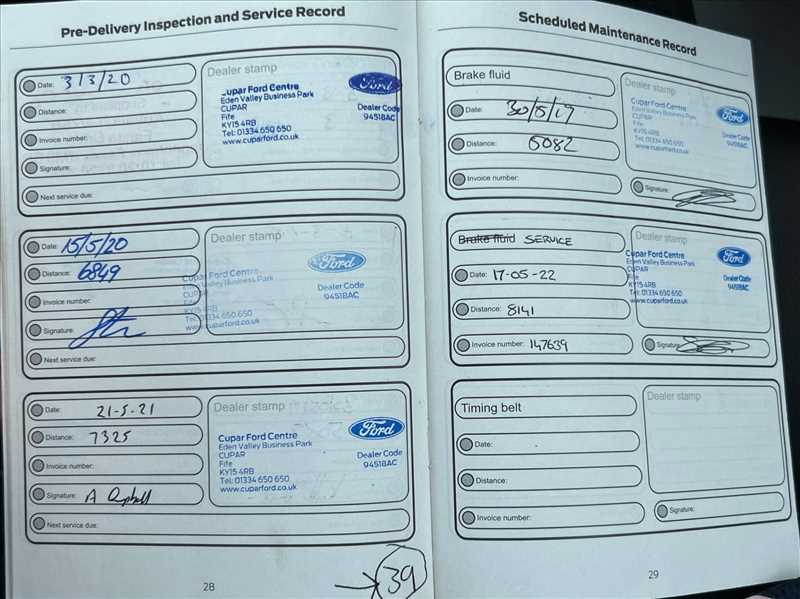 Pre-Delivery Inspection and Service Record
Date: 3/3/20
Distance:
Invoice number:
Signature:
Next service due:
Dealer stamp
Cupar Ford Centre
Eden Valley Business Park
CUPAR
Fife
KY15 4RB
Tel: 01334 650 650
www.cuparford.co.uk
Ford
Dealer Code
94518AC
Date: 15/5/20
Distance: 6849
Invoice number:
Signature:
Next service due:
Dealer stamp
Cupar Ford Centre
Eden Valley Business Park
CUPAR
Fife
KY15 4RB
Tel: 01334 650 650
www.cuparford.co.uk
Ford
Dealer Code
94518AC
Date: 21-5-21
Distance: 7325
Invoice number:
Signature: A
Next service due:
Dealer stamp
Cupar Ford Centre
Eden Valley Business Park
CUPAR
Fife
KY15 4RB
Tel: 01334 650 650
www.cuparford.co.uk
Ford
Dealer Code
94518AC
28
→ 39
Scheduled Maintenance Record
Brake fluid
Date: 30/5/19
Distance: 5082
Invoice number:
Dealer stamp
Cupar Ford Centre
Eden Valley Business Park
CUPAR
Fife
KY15 4RB
Tel: 01334 650 650
www.cuparford.co.uk
Ford
Dealer Code
94518AC
Signature:
Brake fluid SERVICE
Date: 17-05-22
Distance: 8141
Invoice number: 147639
Dealer stamp
Cupar Ford Centre
Eden Valley Business Park
CUPAR
Fife
KY15 4RB
Tel: 01334 650 650
www.cuparford.co.uk
Ford
Dealer Code
94518AC
Signature:
Timing belt
Date:
Distance:
Invoice number:
Dealer stamp
Signature:
29